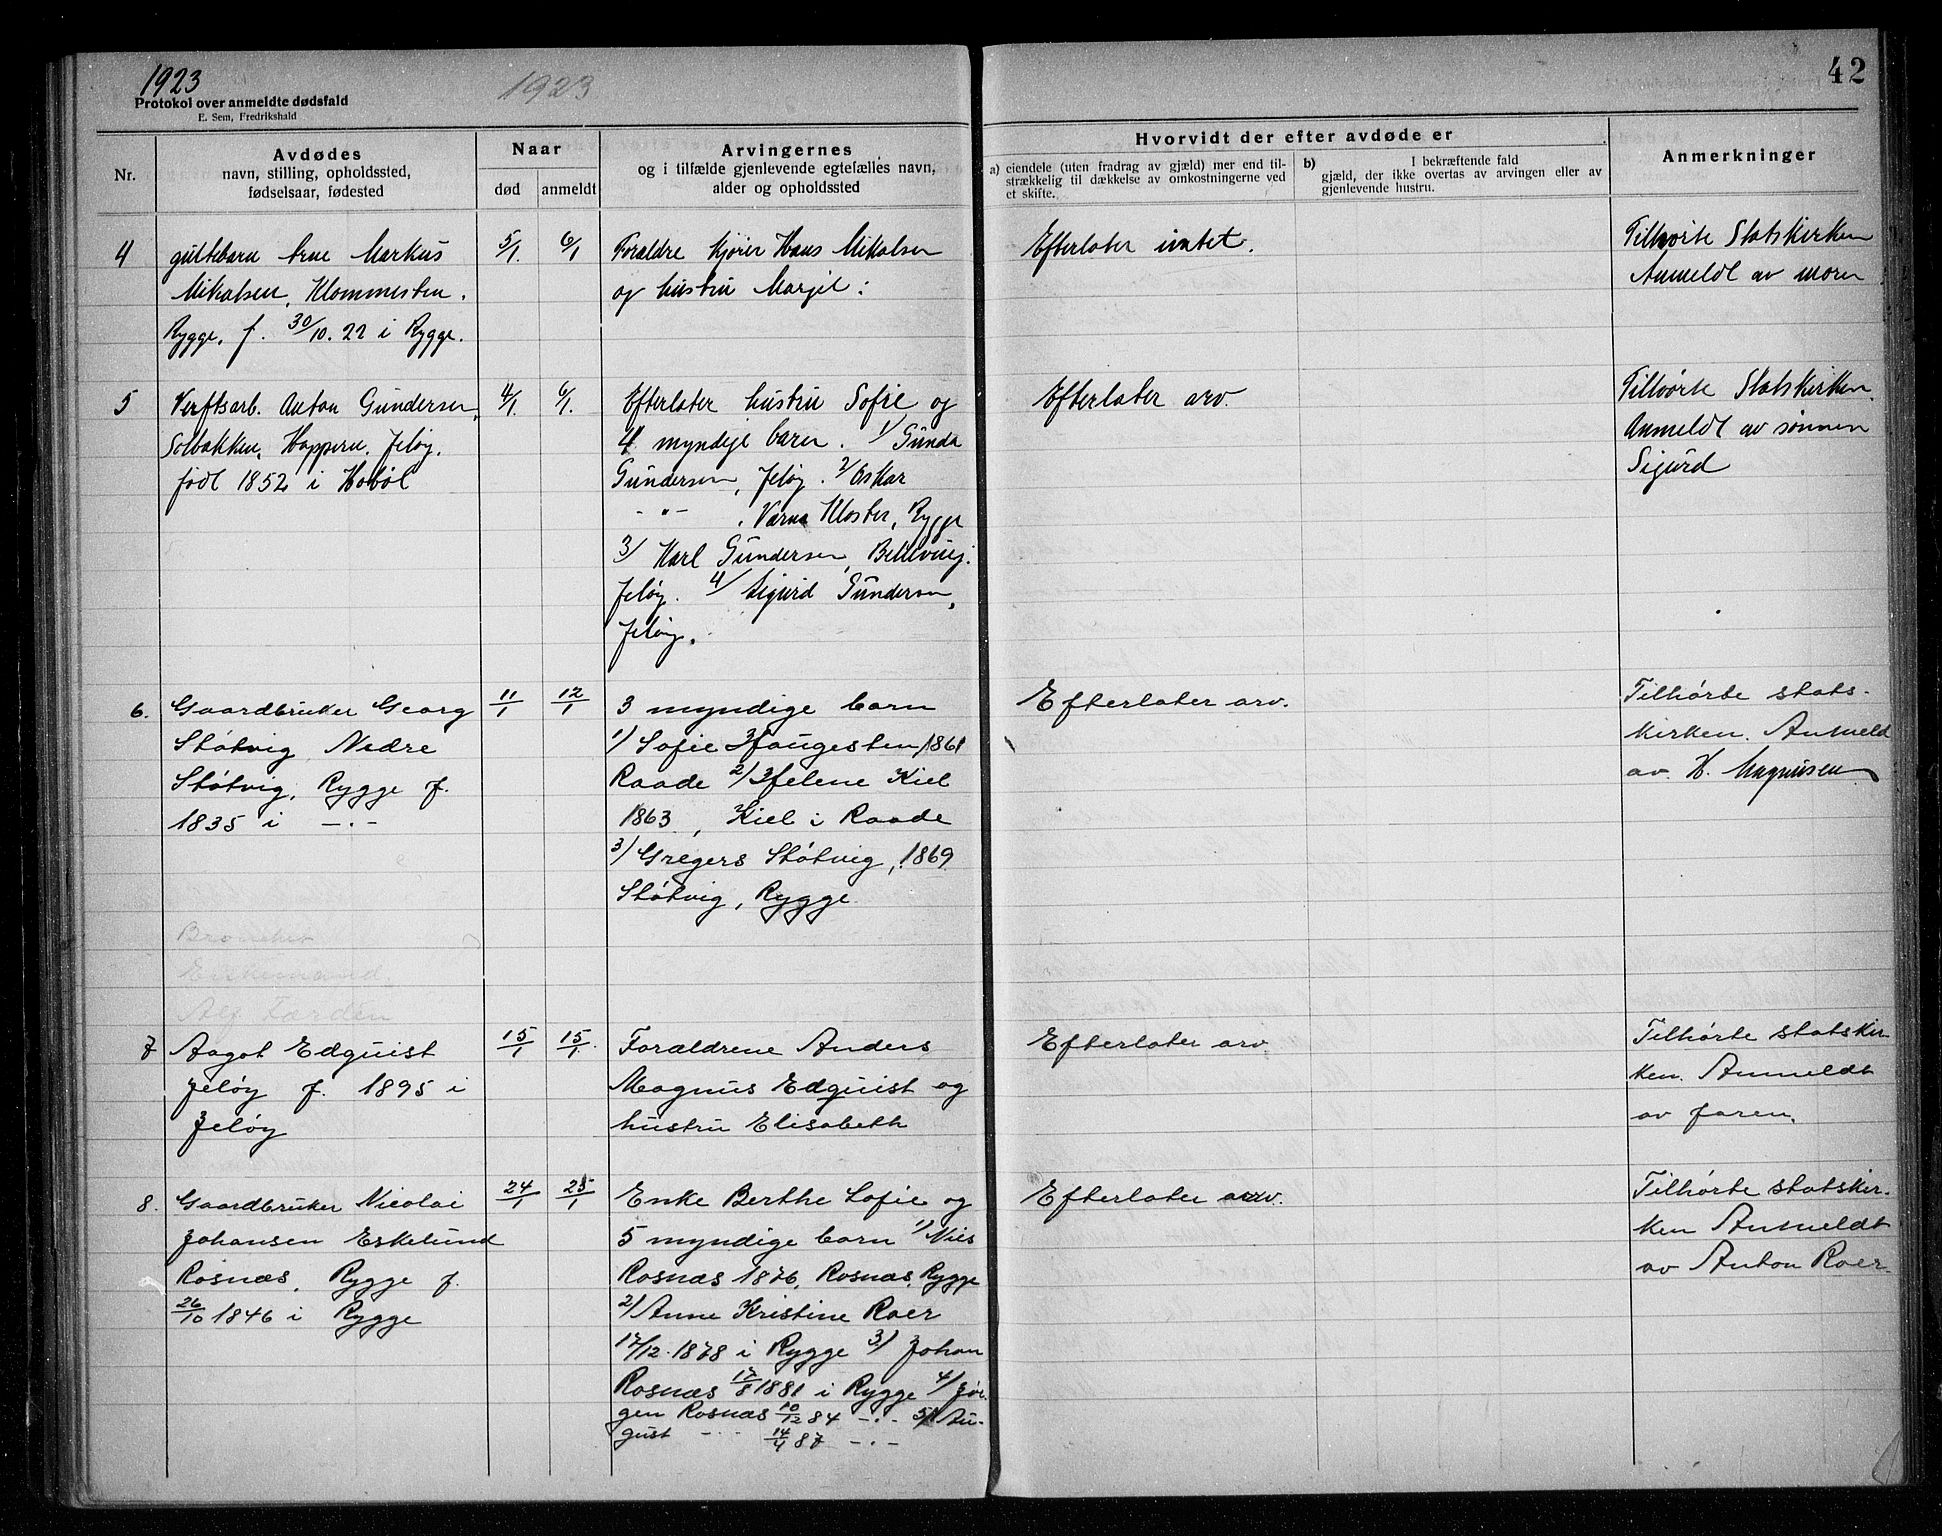 1923
1923
42
Protokol over anmeldte dødsfald
E. Sem, Fredrikshald
Nr.
Avdødes
navn, stilling, opholdssted,
fødselsaar, fødested
Naar
død
anmeldt
Arvingernes
og i tilfælde gjenlevende egtefælles navn,
alder og opholdssted
Hvorvidt der efter avdøde er
a) eiendele (uten fradrag av gjæld) mer end til-
strækkelig til dækkelse av omkostningerne ved
et skifte.
b) I bekræftende fald
gjæld, der ikke overtas av arvingen eller av
gjenlevende hustru.
Anmerkninger
4
guttebarn Arne Markus
Mikalsen, Klommesten.
Rygge, f. 30/10. 22 i Rygge.
5/1.
6/1
Foraldre kjører Hans Mikalsen
og hustru Margit:
Efterlater intet.
Tilhørte Statskirken
Anmeldt av moren
5
Verftsarb. Anton Gundersen,
Solbakken, Happern, Jeløy.
født 1852 i Hobøl
4/1.
6/1.
Efterlater hustru Sofie og
4 myndige barn. 1/ Gunda
Gundersen, Jeløy. 2/ Oskar
- " - , Værne Kloster, Rygge
3/ Karl Gundersen, Bellevuej.
Jeløy. 4/ Sigurd Gundersen,
Jeløy.
Efterlater arv.
Tilhørte Statskirken.
Anmeldt av sønnen
Sigurd
6.
Gaardbruker Georg
Støtvig, Nedre
Støtvig, Rygge f.
1835 i - . -
11/1
12/1
3 myndige barn
1/ Sofie Haugesten, 1861
Raade 2/ Helene Kiel
1863, Kiel i Raade
3/ Gregers Støtvig, 1869
Støtvig, Rygge
Efterlater arv.
Tilhørte stats-
kirken. Anmeld
av. H. Magnusen
Enkemand.
Alf Færden
7
Aagot Edquist
Jeløy f. 1895 i
Jeløy
15/1
15/1.
Forældrene Anders
Magnus Edquist og
hustru Elisabeth
Efterlater arv
Tilhørte statskir-
ken. Anmeldt
av faren.
8.
Gaardbruker Nicolai
Johansen Eskelund
Rosnæs, Rygge f.
26/10 1846 i Rygge
24/1
25/1
Enke Berthe Sofie og
5 myndige barn 1/ Nils
Rosnæs 1876, Rosnæs, Rygge
2/ Anne Kristine Roer
17/12 1878 i Rygge 3/ Johan
Rosnæs 17/8 1881 i Rygge 4/ Jør-
gen Rosnæs 10/12 84 - . - 5/ Au-
gust - - - 14/4 87 - . -
Efterlater arv.
Tilhørte statskir-
ken Anmeldt
av Anton Roer